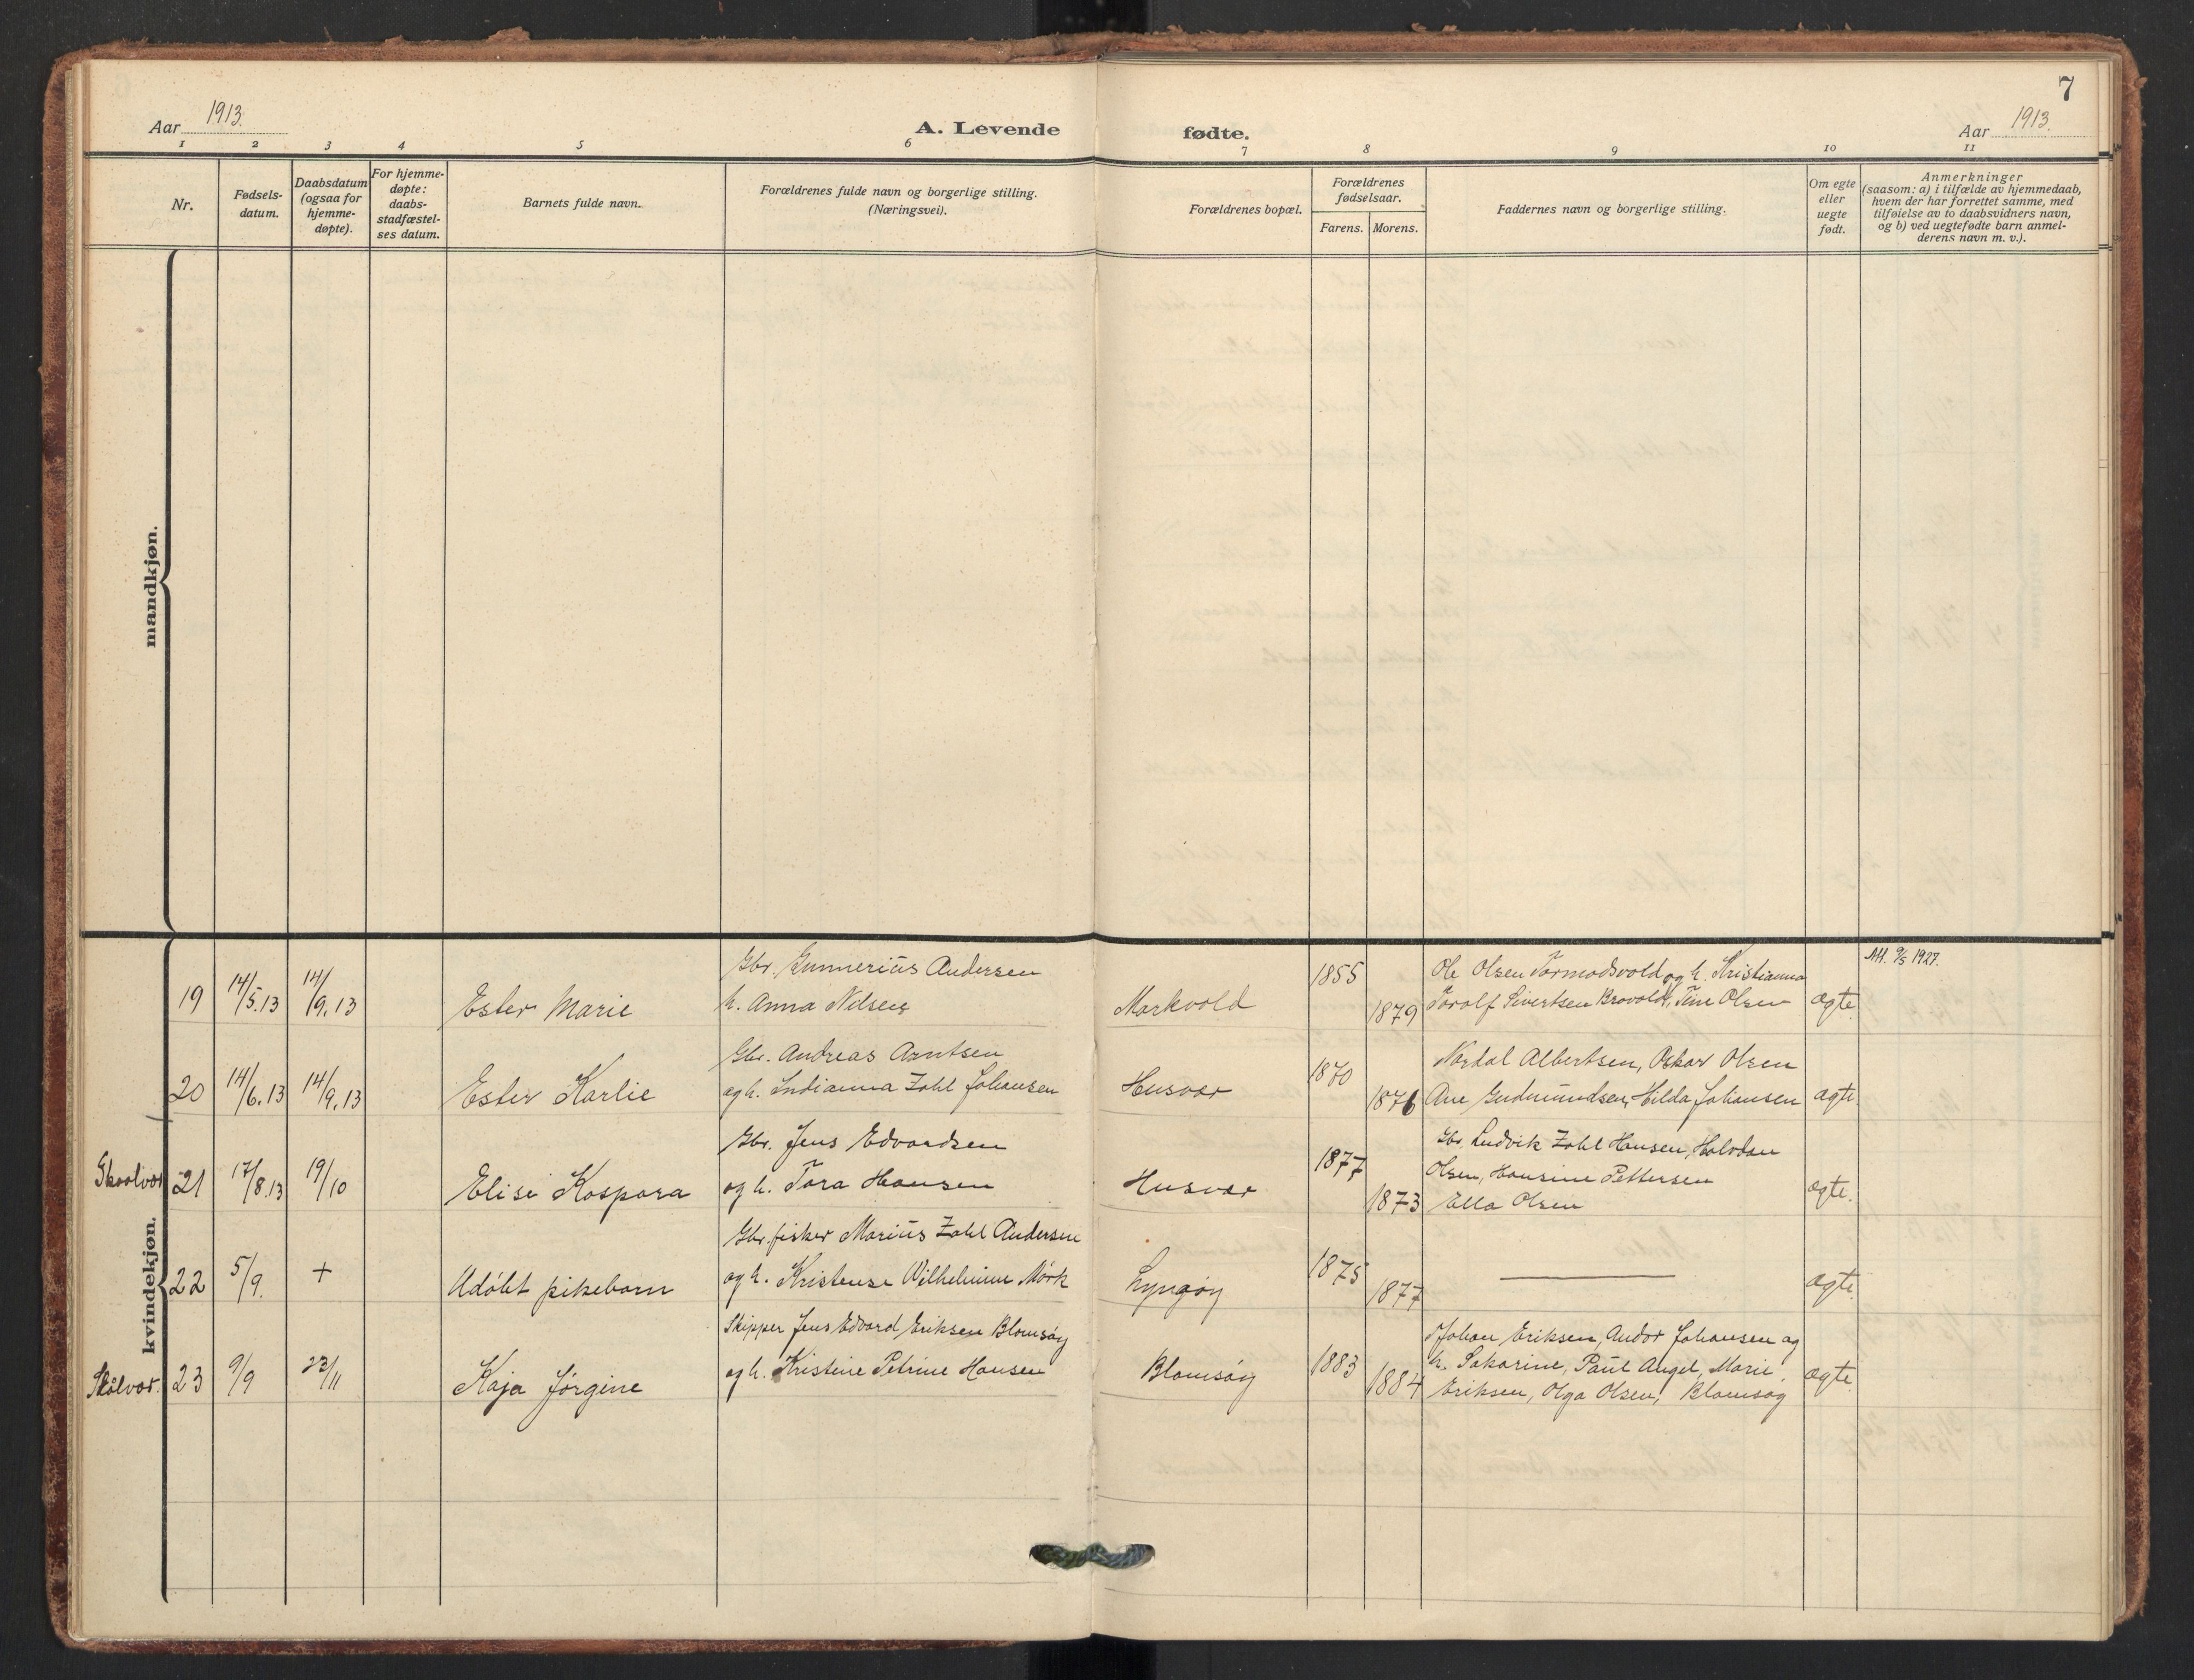 7
Aar 1913.
A. Levende fødte.
Aar 1913.
1 2 3 4 5 6 7 8 9 10 11
Nr.
Fødsels-
datum.
Daabsdatum
(ogsaa for
hjemme-
døpte).
For hjemme-
døpte:
daabs-
stadfæstel-
ses datum.
Barnets fulde navn.
Forældrenes fulde navn og borgerlige stilling.
(Næringsvei).
Forældrenes bopæl.
Forældrenes
fødselsaar.
Farens. Morens.
Faddernes navn og borgerlige stilling.
Om egte
eller
uegte
født.
Anmerkninger
(saasom: a) i tilfælde av hjemmedaab,
hvem der har forrettet samme, med
tilføielse av to daabsvidners navn,
og b) ved uegtefødte barn anmel-
derens navn m. v.).
mandkjøn.
kvindekjøn.
19
14/5.13
14/9.13
Ester Marie
Gbr. Gunnerius Andersen
h. Anna Nilsen
Markvold
1855
1879
Ole Olsen Tormodsvold og h. Kristianna
Torolf Sivertsen Brovold, Tine Olsen
ægte.
Att. 9/5 1927.
20
14/6.13
14/9.13
Ester Karlie
Gbr. Andreas Arntsen
og h. Indianna Zahl Johansen
Husvær
1870
1876
Nordal Albertsen, Oskar Olsen
Ane Gudmundsen, Hilda Johansen
ægte.
Skaalvær
21
17/8.13
19/10
Elise Kaspara
Gbr. Jens Edvardsen
og h. Tora Hansen
Husvær
1877
1873
Gbr. Ludvik Zahl Hansen, Halvdan
Olsen, Hansine Pettersen
Ella Olsen
ægte.
22
5/9.
+
Udøbt pikebarn
Gbr. fisker Marius Zahl Andersen
og h. Kristense Wilhelmine Mörk
Lyngøy
1875
1877
ægte.
Skålvær.
23
9/9
23/11
Kaja Jørgine
Skipper Jens Edvard Eriksen Blomsøy
og h. Kristine Petrine Hansen
Blomsøy
1883
1884
Johan Eriksen, Andor Johansen og
h. Sakarine, Paul Angel, Marie
Eriksen, Olga Olsen, Blomsøy
ægte.